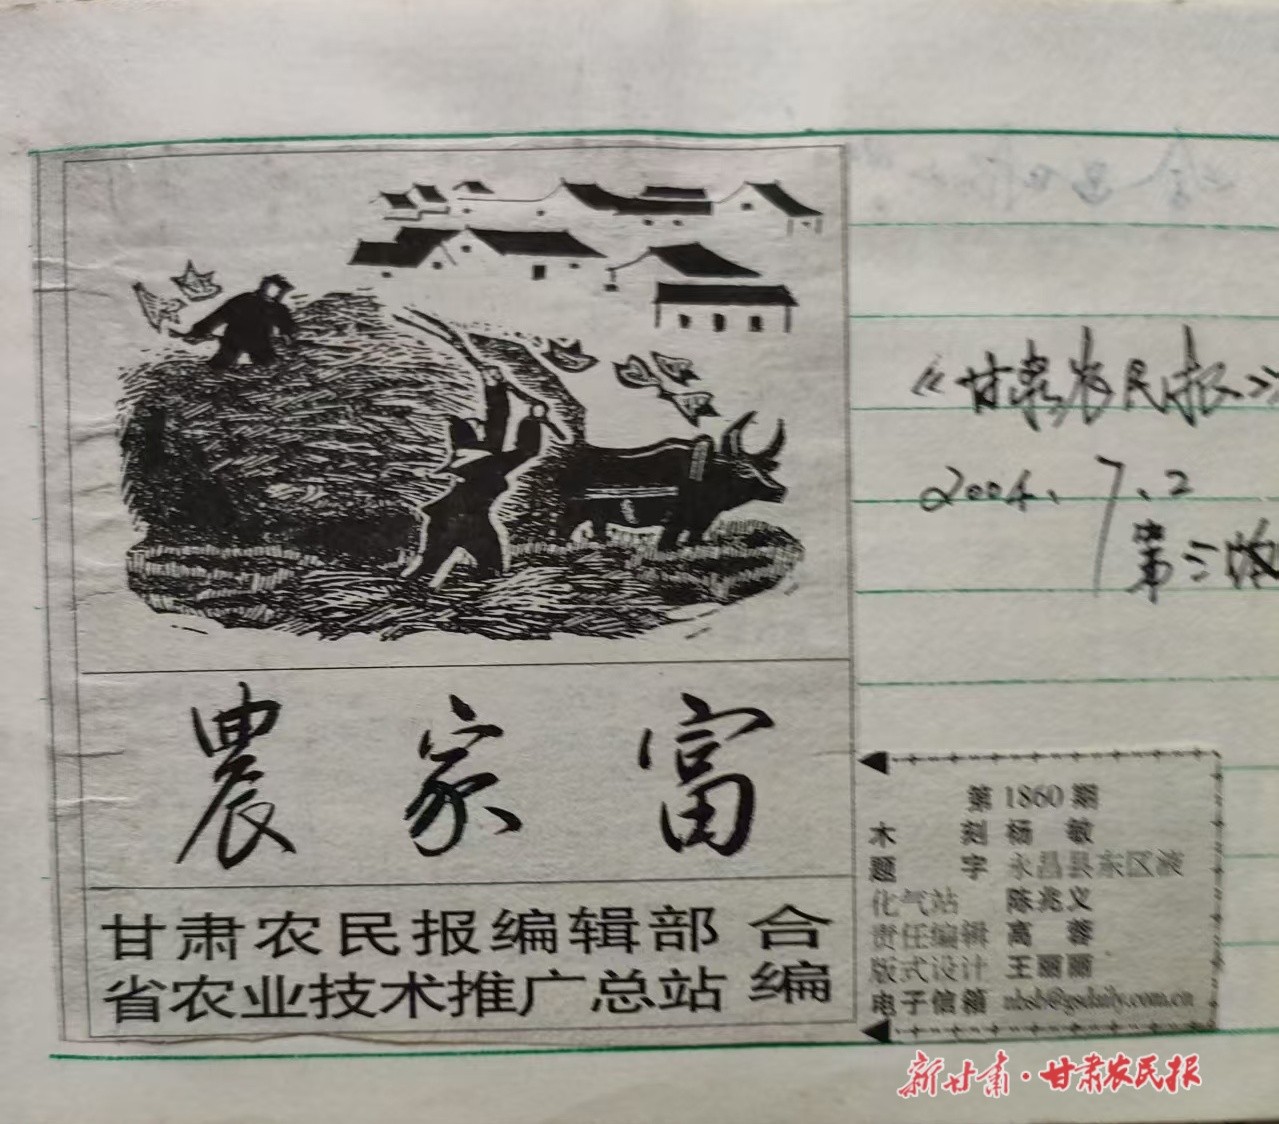 《甘肃农民报》
2004、7、2
第三版
農家富
甘肃农民报编辑部 合
省农业技术推广总站 编
第1860期
木刻 杨敏
题字 永昌县东区液
化气站 陈兆义
责任编辑 高蓉
版式设计 王丽丽
电子信箱 nbsb@gsdaily.com.cn
新甘肃·甘肃农民报